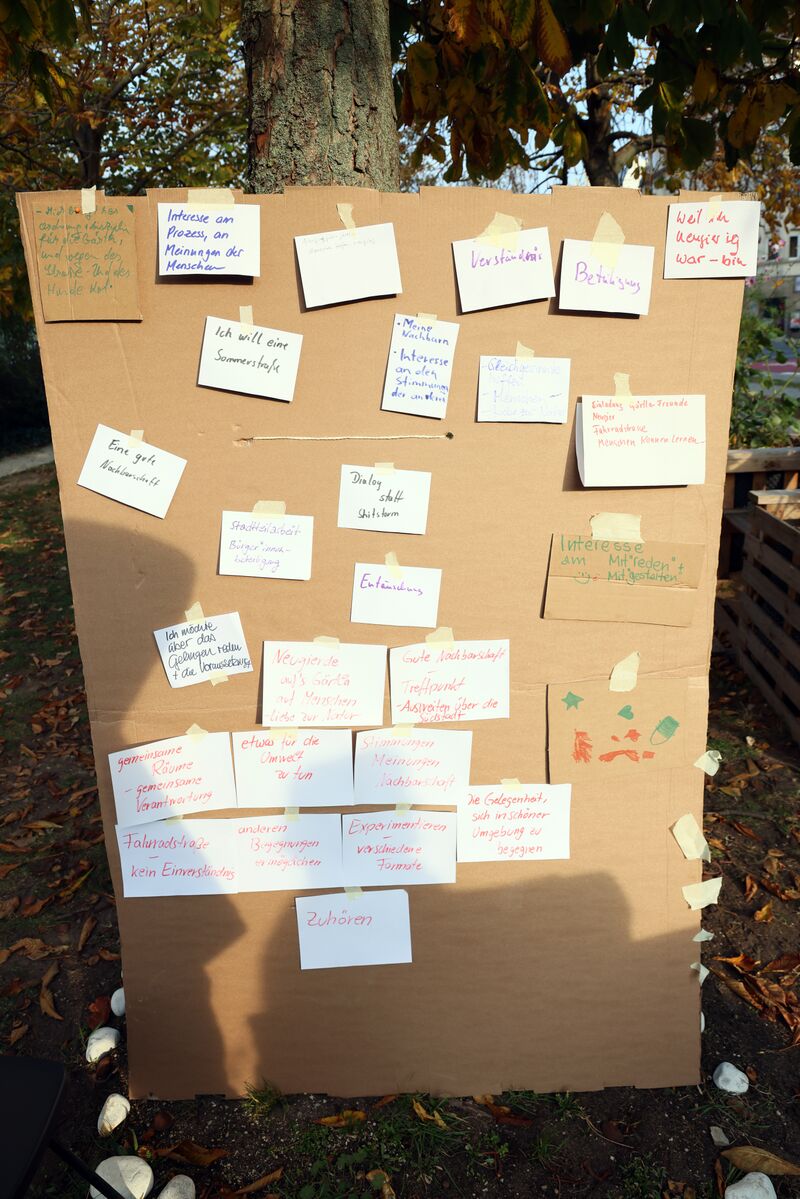 für die Gäste,
und wegen des
Hunde
Interesse am
Prozess, an
Meinungen der
Menschen
Verständnis
Betätigung
Weil ich
neugierig
war - bin
Ich will eine
Sommerstraße
- Meine
Nachbarn
- Interesse
an den
Stimmungen
der anderen
- Menschen
Einladung Gärtla-Freunde
Neugier
Fahrradstrasse
Menschen kennen lernen
Eine gute
Nachbarschaft
Dialog
statt
Shitstorm
Stadtteilarbeit
Bürger*innen-
beteiligung
Entäuschung
Interesse
am Mit"reden" +
Mitgestalten
Ich möchte
über das
Gelingen reden
+ die Voraussetzung
Neugierde
auf's Gärtla
auf Menschen
-Liebe zur Natur
Gute Nachbarschaft
Treffpunkt
- Ausweiten über die
Südstadt
gemeinsame
Räume
- gemeinsame
Verantwortung
etwas für die
Umwelt
zu tun
Stimmungen
Meinungen
Nachbarschaft
Fahrradstraße
-
kein Einverständnis
anderen
Begegnungen
ermöglichen
Experimentieren
-
verschiedene
Formate
Die Gelegenheit,
sich in schöner
Umgebung zu
begegnen
Zuhören